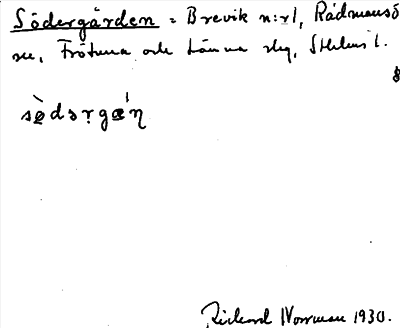 Södergården = Brevik n:r 1, Rådmansö
sn, Frötuna och Länna skg, Sthlms l.
sø̀dərgæ̍ṇ
Rickard Norrman 1930.